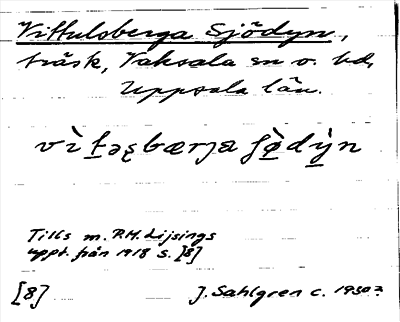 Vittulsberga Sjödyn,
träsk, Vaksala sn o. hd,
Uppsala län.
vì t̠əʂbærja ʃø̀dỳ̠n
Tills m. P.H. Lijsings
uppt. från 1918 s. [8]
[8] J. Sahlgren c. 1930?